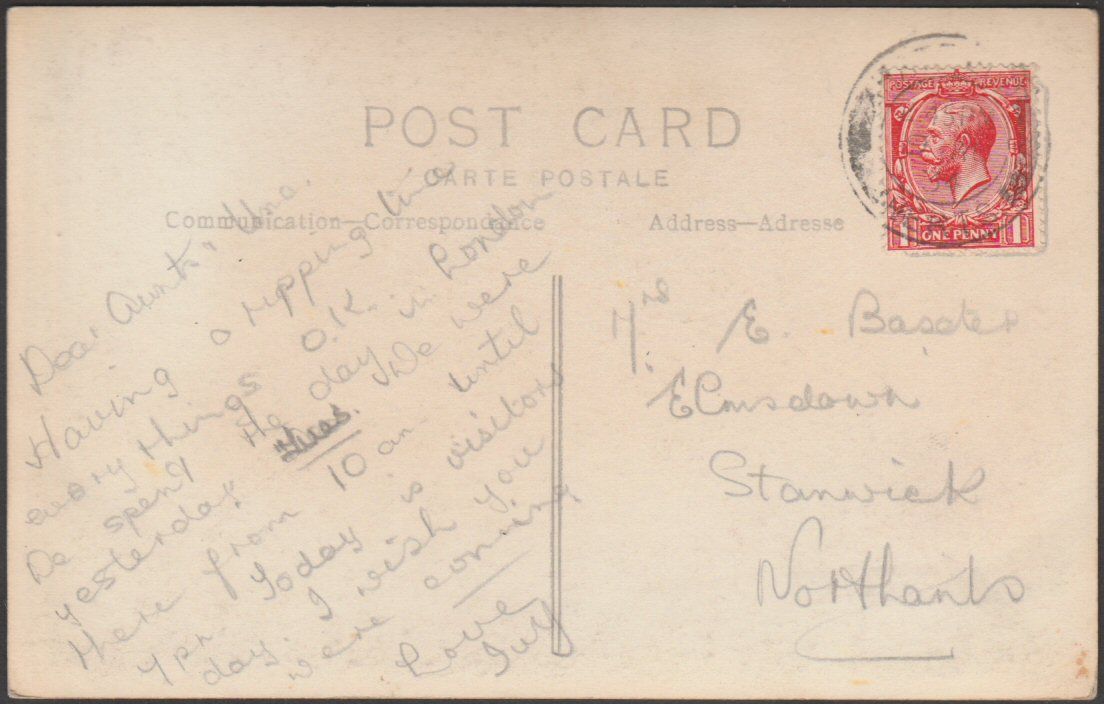 POST CARD
CARTE POSTALE
Communication—Correspondence
Address—Adresse
POSTAGE REVENUE
1 ONE PENNY 1
Dear Aunt
Having a ripping time
every things O.K.
We spent the day in London
yesterday We were
there from 10 am until
7 pm Today is visitors
day. I wish you
were coming
Love
Ivy
Mrs E.
Elmsdown
Stanwick
Northants